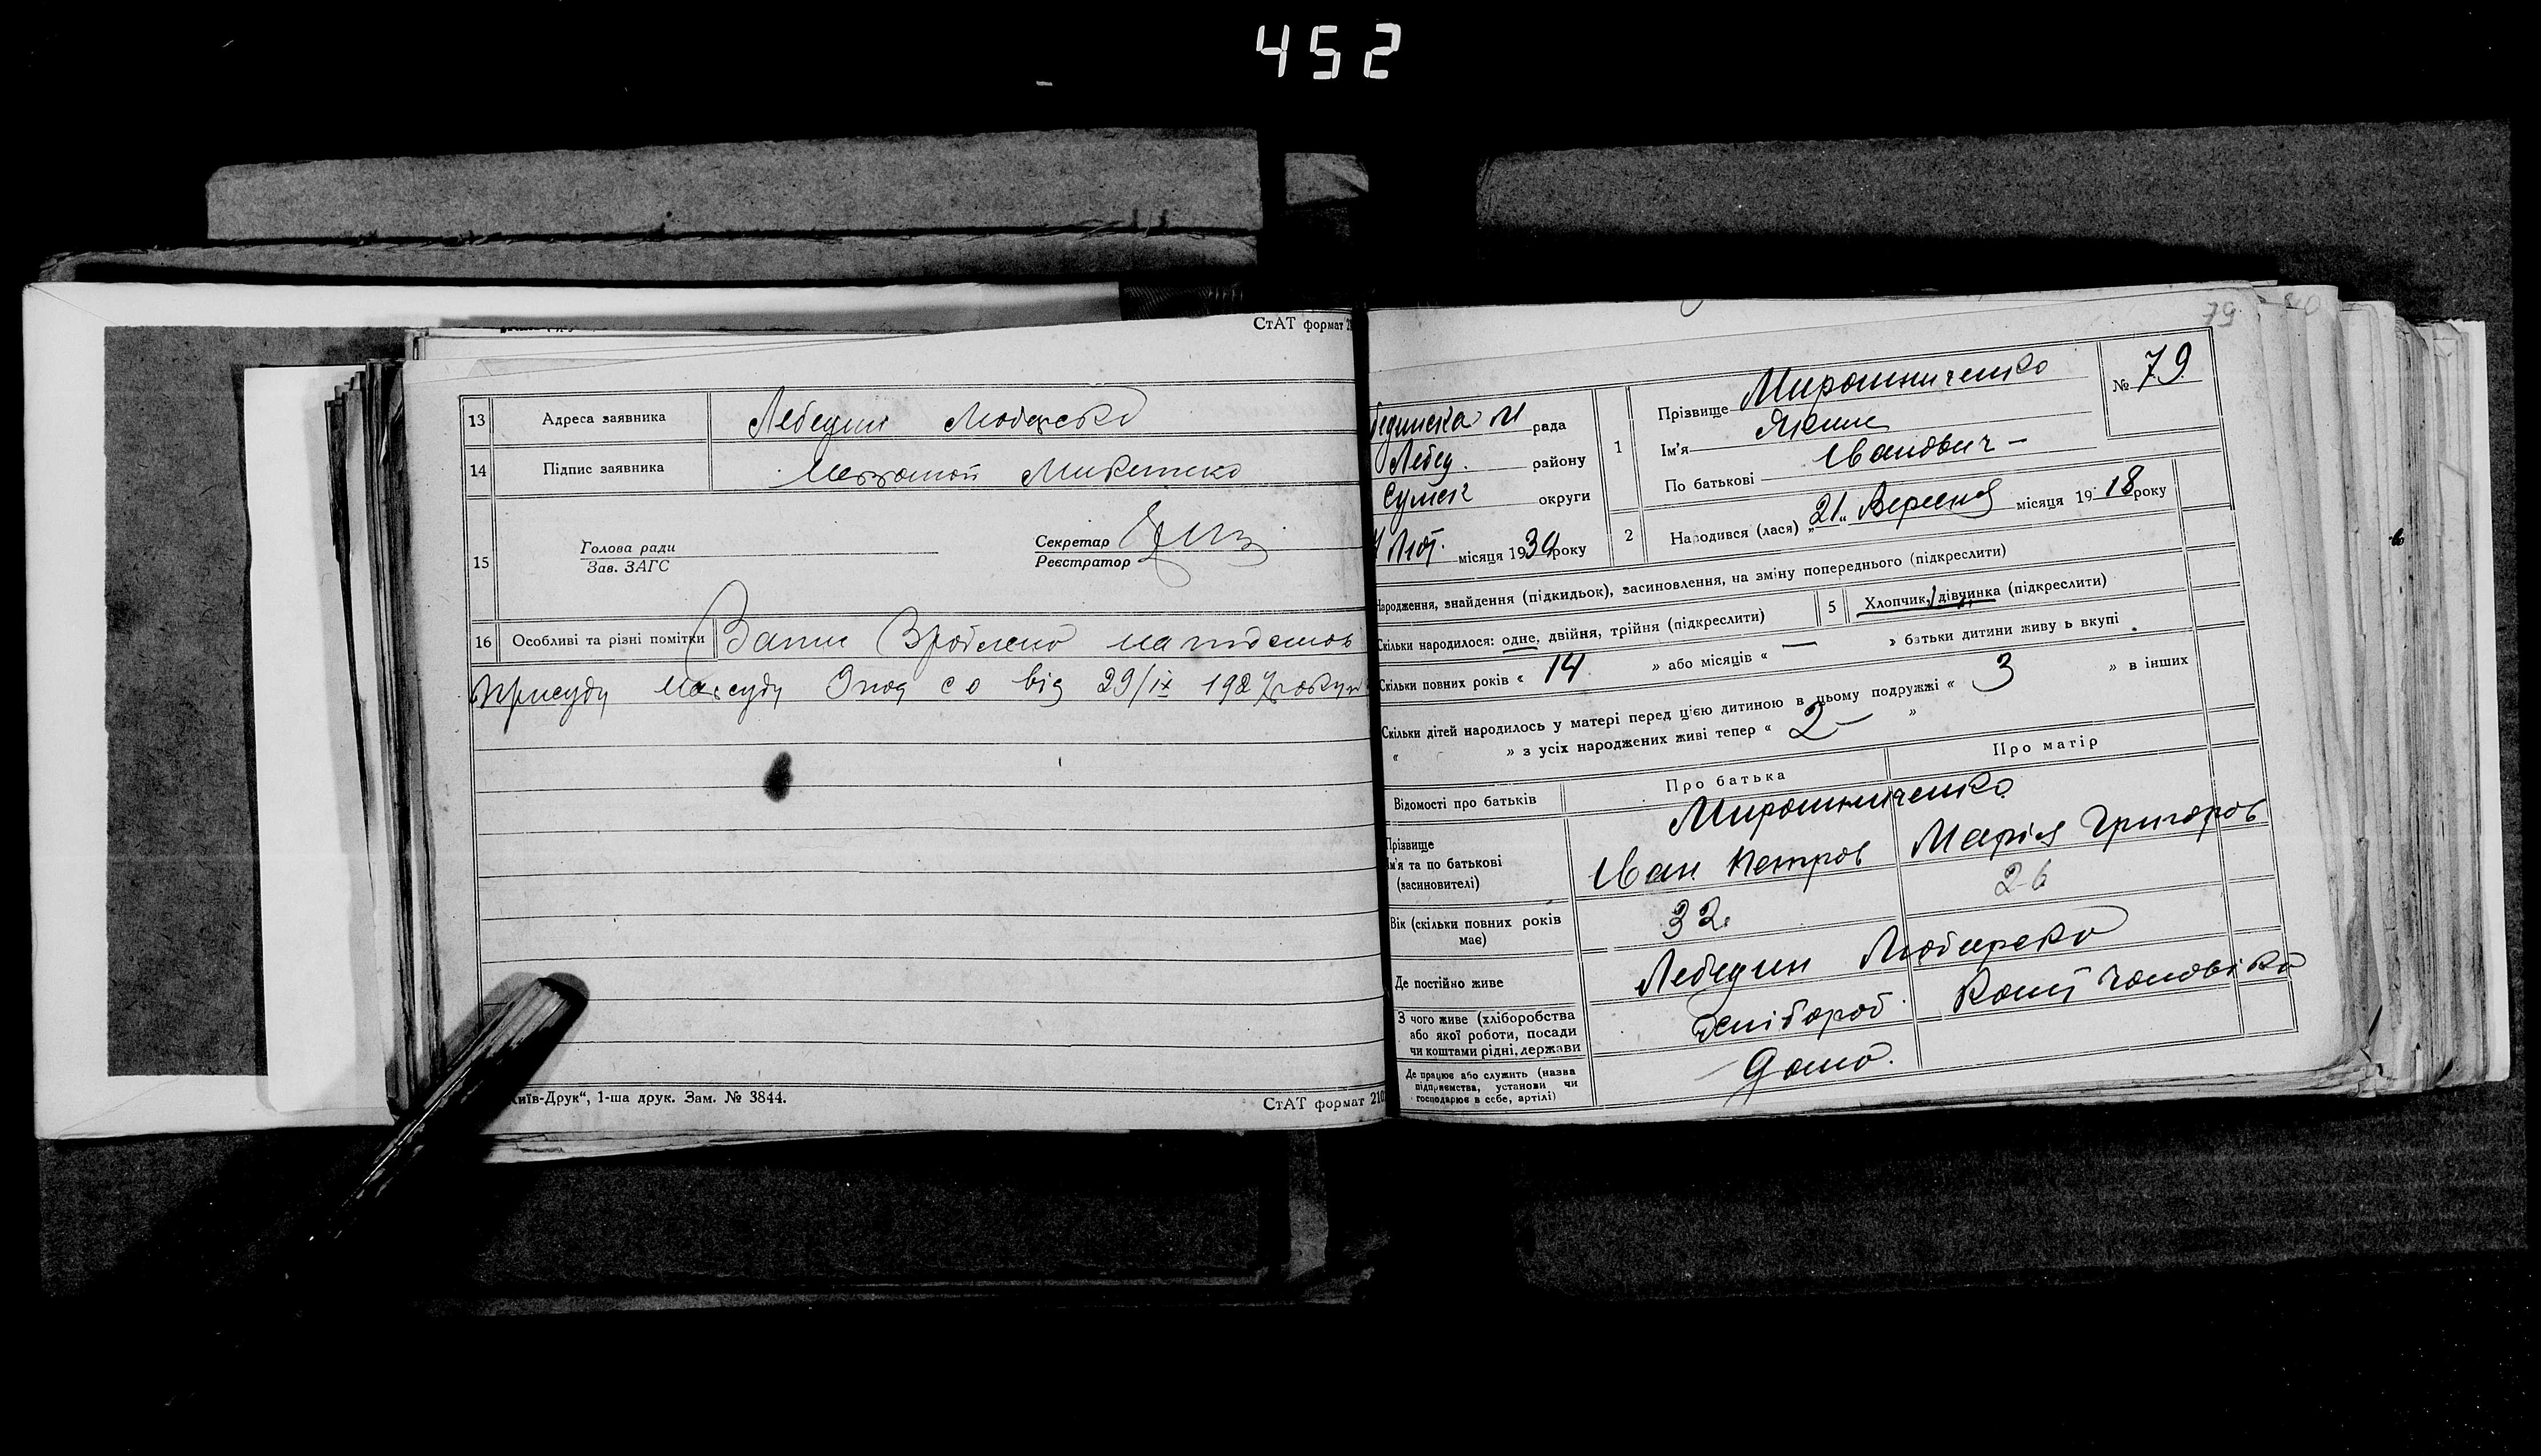 452
СтАТ формат 2
13 Адреса заявника Лебедин Любарска
14 Підпис заявника Микитенко
15 Голова ради Секретар
Зав. ЗАГС Реєстратор
16 Особливі та різні помітки Запис Зроблено на підстав
присуду нарсуду від 29/IX 1927 року
иїв-Друк“, 1-ша друк. Зам. № 3844.
СтАТ формат 210
79
№ 79
единска М рада
Лебед. району
Сумск округи
Лют. місяця 1930 року
1 Прізвище Мирошниченко
Ім'я
По батькові Іванович —
2 Народився (лася) „21„ Вересня місяця 1918 року
Народження, знайдення (підкидьок), засиновлення, на зміну попереднього (підкреслити)
Скільки народилося: одне, двійня, трійня (підкреслити) 5 Хлопчик, дівчинка (підкреслити)
Скільки повних років « 14 » або місяців « — » батьки дитини живуть вкупі
Скільки дітей народилось у матері перед цією дитиною в цьому подружжі « 3 » в інших
« » з усіх народжених живі тепер « 2 — »
Відомості про батьків Про батька Про матір
Прізвище Мирошниченко
Ім'я та по батькові Іван Петров Марія Григоров
(засиновителі)
Вік (скільки повних років має) 32. 26
Де постійно живе Лебедин Любарска
З чого живе (хліборобства або якої роботи, посади чи коштами рідні, держави Хлібороб Кошт чоловіка
Де працює або служить (назва підприємства, установи чи господарює в себе, артілі) Дома.